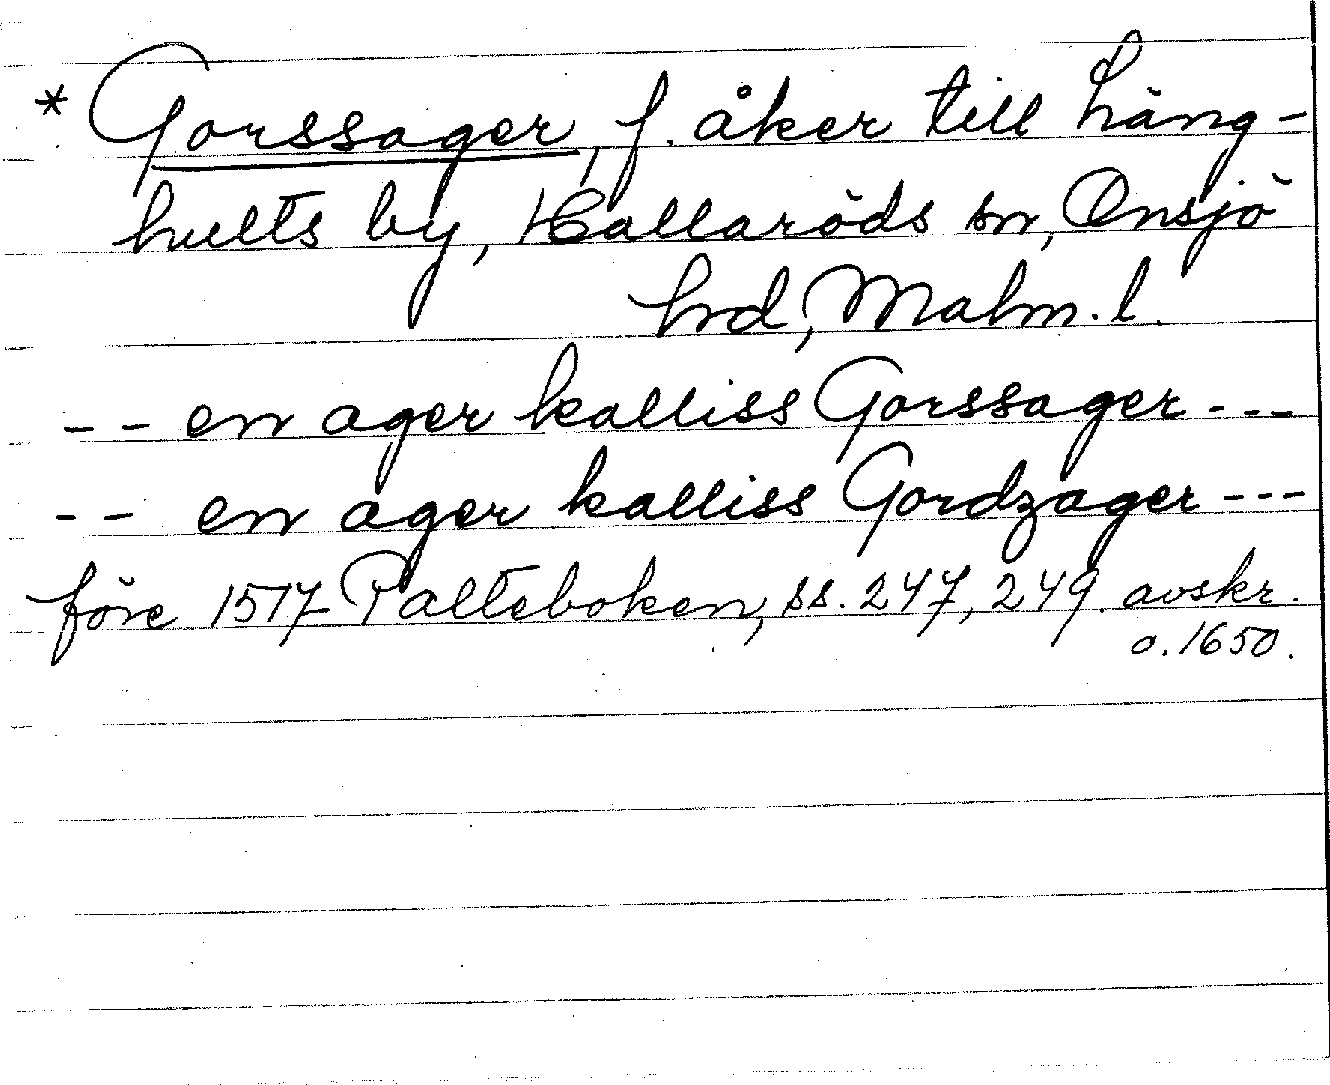 * Gorssager, f. åker till Häng-
hults by, Hallaröds sn, Onsjö
hrd, Malm. l.
-- en ager kalliss Gorssager ---
-- en ager kalliss Gordzager ---
före 1517 Palteboken, ss. 247, 249. avskr.
o. 1650.